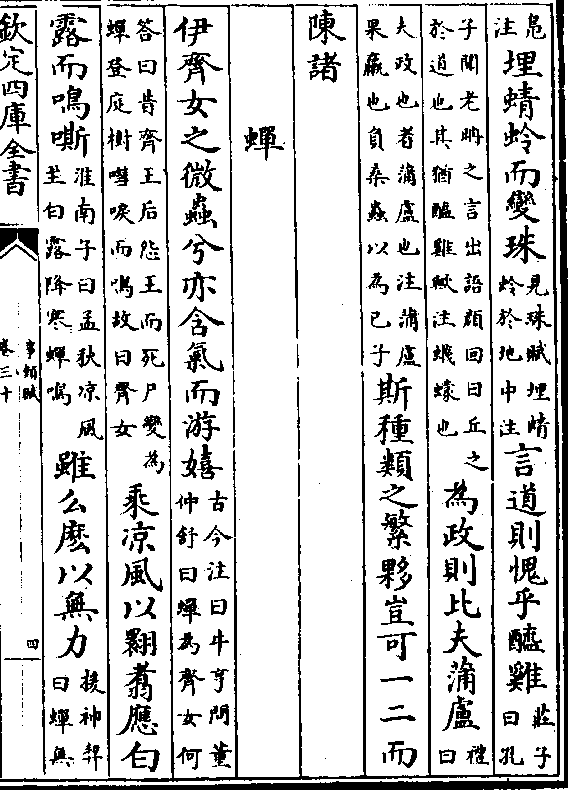 注埋蜻蛉而變珠見珠賦埋蜻蛉於地中注言道則愧乎醯雞莊子曰孔
子聞老聃之言出語顔回曰丘之於道也其猶醯雞歟注蠛蠓也為政則比夫蒲盧禮曰
夫政也者蒲盧也注蒲盧果蠃也負桑蟲以為己子斯種類之繁夥豈可一二而
陳諸
蟬
伊齊女之微蟲兮亦含氣而游嬉古今注曰牛亨問董仲舒曰蟬為齊女何
答曰昔齊王后怨王而死尸變為蟬登庭樹嘒唳而鳴故曰齊女乘凉風以翾翥應白
露而鳴嘶淮南子曰孟秋凉風至白露降寒蟬鳴雖么麽以無力援神契曰蟬無
欽定四庫全書
事類賦
卷三十
四